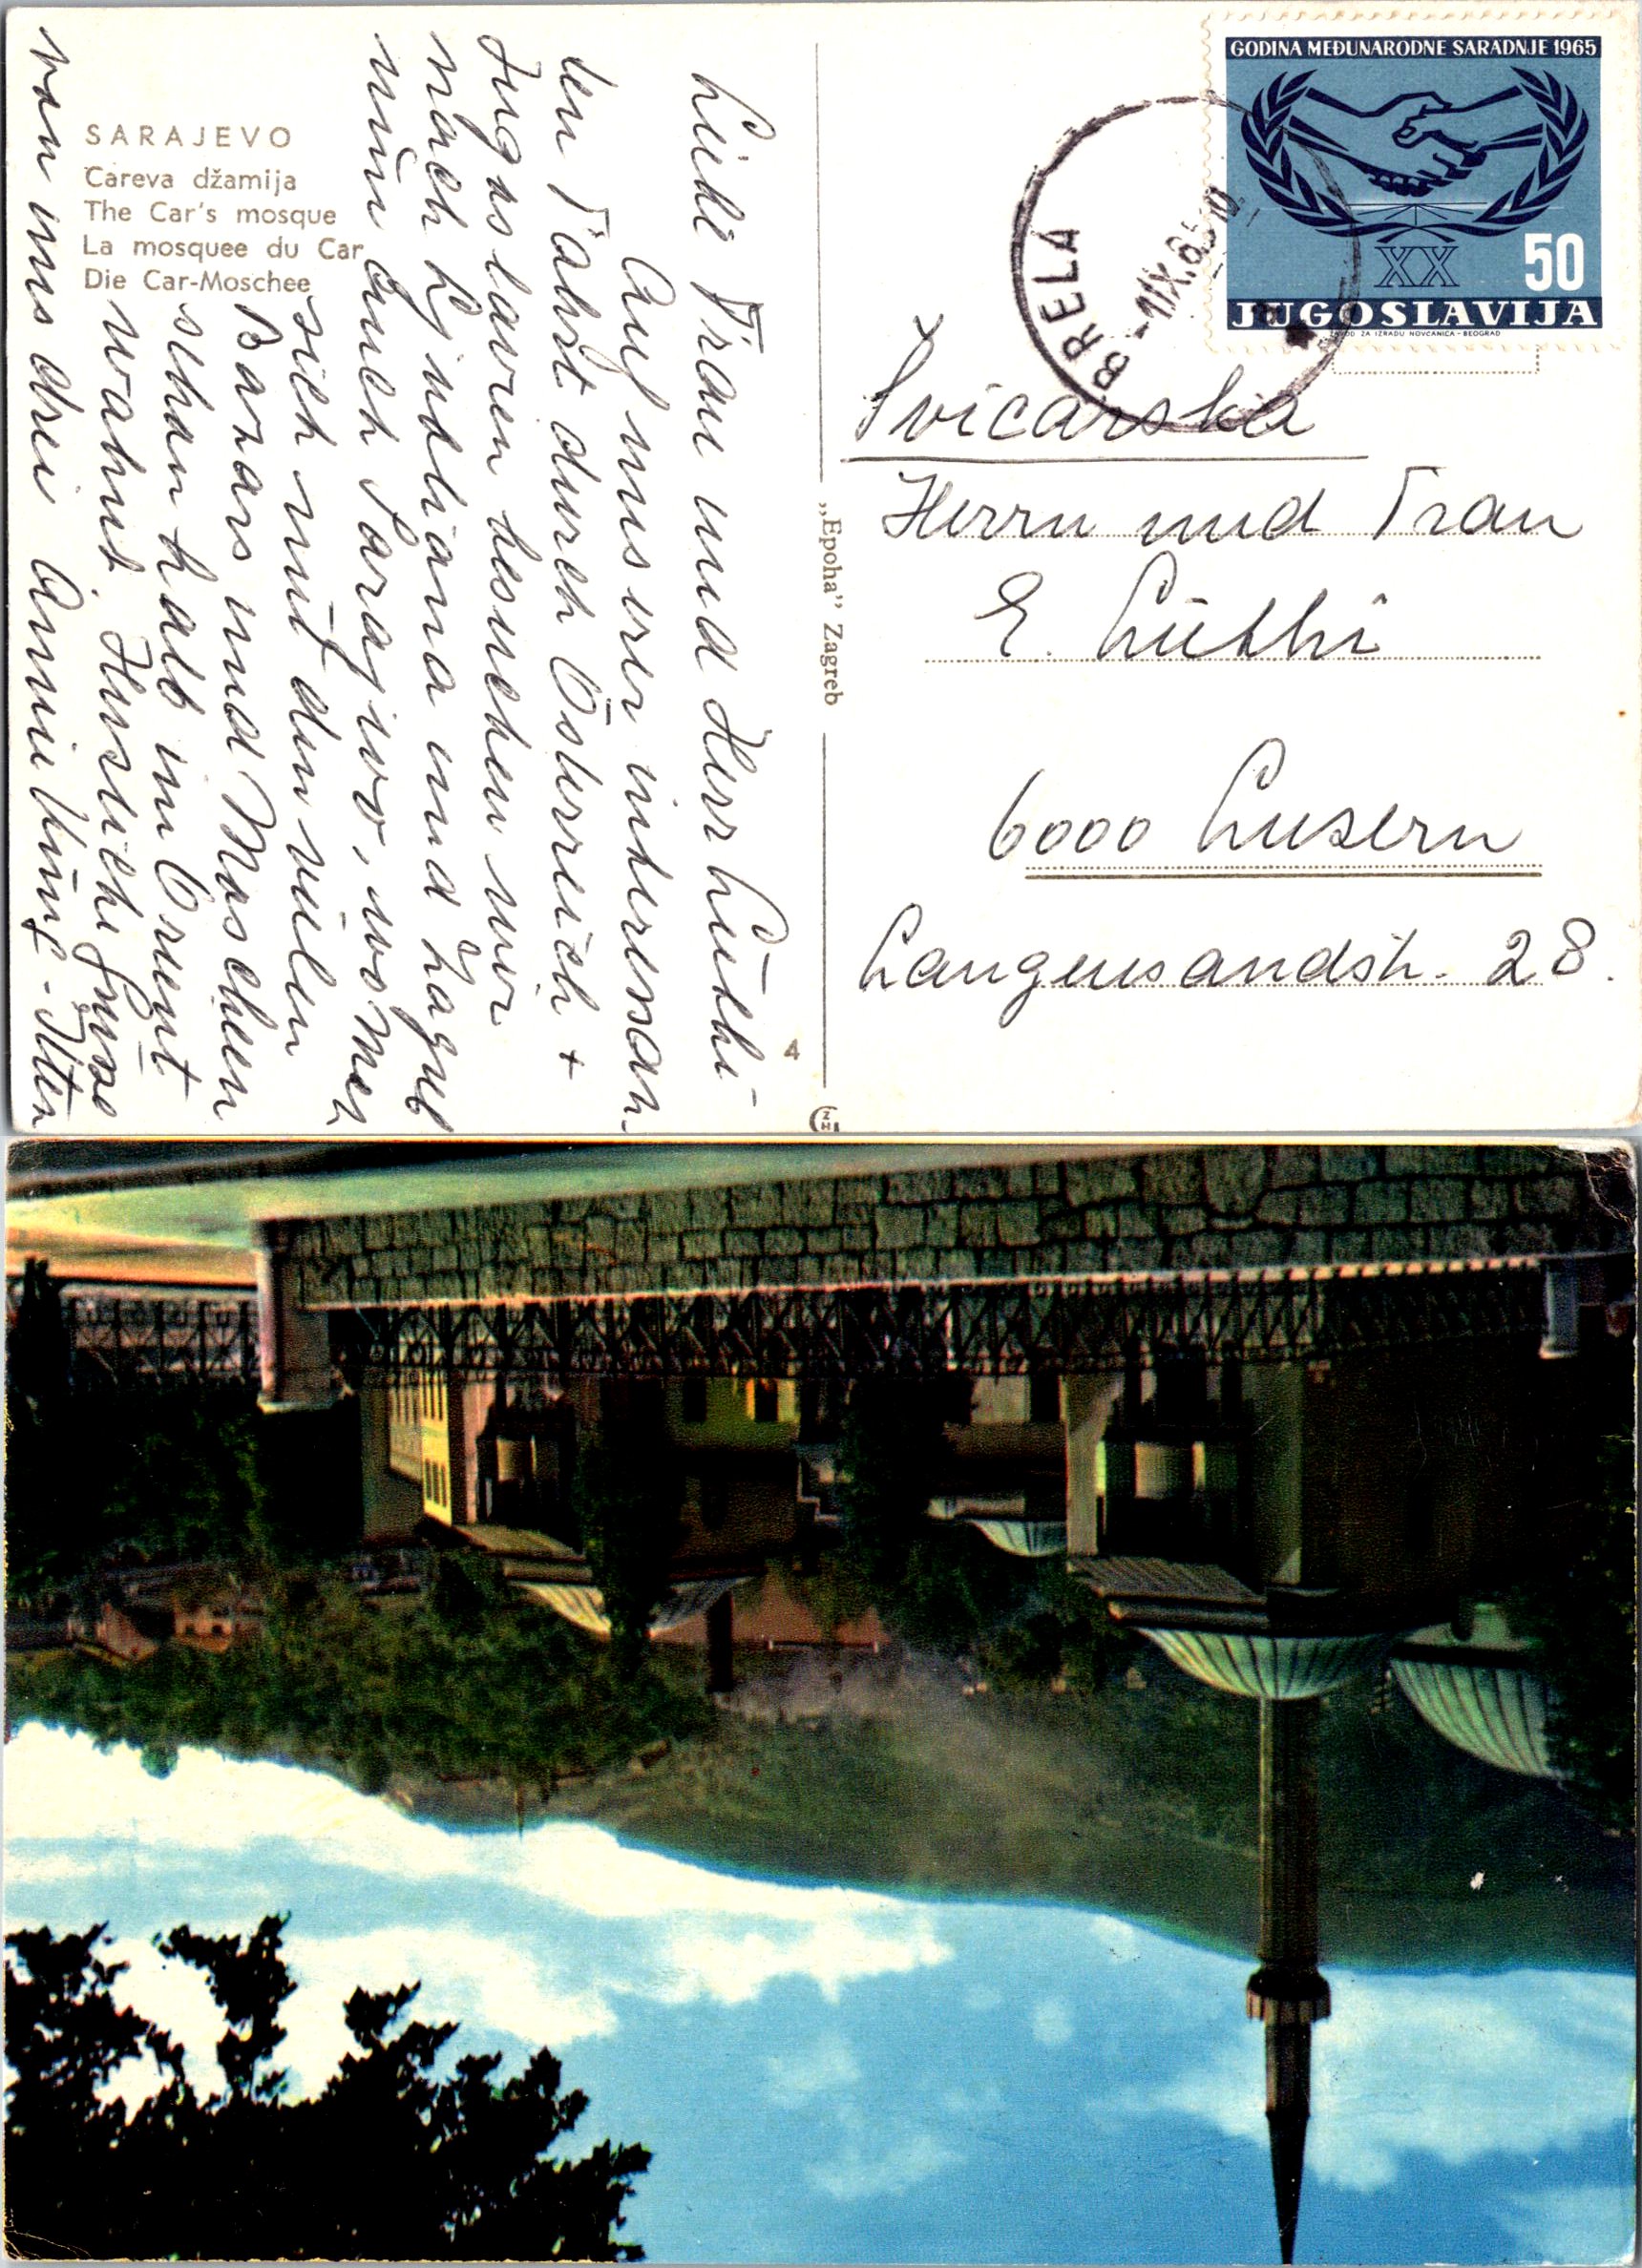 SARAJEVO
Careva džamija
The Car's mosque
La mosquee du Car
Die Car-Moschee
Liebe Frau und Herr Lüthi-
Auf unserer interessan-
ten Fahrt durch Österreich +
Jugoslavien besuchen wir
nach Ljubliana und Zagreb
nun auch Sarajevo, wo man
sich mit den vielen
Bazars und Moscheen
schon halb im Orient
wähnt. Herzliche Grüsse
von uns drei
„Epoha” Zagreb
4
GODINA MEĐUNARODNE SARADNJE 1965
XX
50
JUGOSLAVIJA
ZAVOD ZA IZRADU NOVČANICA - BEOGRAD
8 BRELA
Švicarska
Herrn und Frau
E. Lüthi
6000 Luzern
Langensandstr. 28.